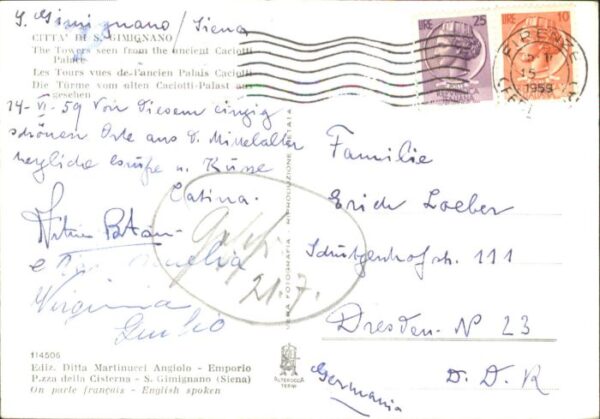 S. Gimignano / Siena
CITTA' DI S. GIMIGNANO
The Towers seen from the ancient Caciotti
Palace
Les Tours vues de l'ancien Palais Caciotti
Die Türme vom alten Caciotti-Palast aus
gesehen
14-VI-59 Von diesem einzig
schönen Orte aus d. Mittelalter
herzliche Grüße u. Küsse
Catina.
e
Virginia
Giulio
114506
Ediz. Ditta Martinucci Angiolo - Emporio
P.zza della Cisterna - S. Gimignano (Siena)
On parle français - English spoken
VERA FOTOGRAFIA - RIPRODUZIONE VIETATA
21.7.
LIRE 25
LIRE 10
FIRENZE
15
1959
Familie
Erich Loeber
Schützenhofstr. 111
Dresden-N 23
D. D. R
Germania
ALTEROCCA
TERNI